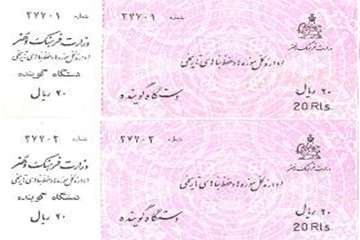 شماره ۲۷۷۰۱
وزارت فرهنگ و هنر
اداره کل موزه‌ها و حفظ بناهای تاریخی
دستگاه گوینده
۲۰ ریال
شماره ۲۷۷۰۱
وزارت فرهنگ و هنر
اداره کل موزه‌ها و حفظ بناهای تاریخی
۲۰ ریال
دستگاه گوینده
20 Rls.
شماره ۲۷۷۰۲
وزارت فرهنگ و هنر
اداره کل موزه‌ها و حفظ بناهای تاریخی
دستگاه گوینده
۲۰ ریال
شماره ۲۷۷۰۲
وزارت فرهنگ و هنر
اداره کل موزه‌ها و حفظ بناهای تاریخی
۲۰ ریال
دستگاه گوینده
20 Rls.